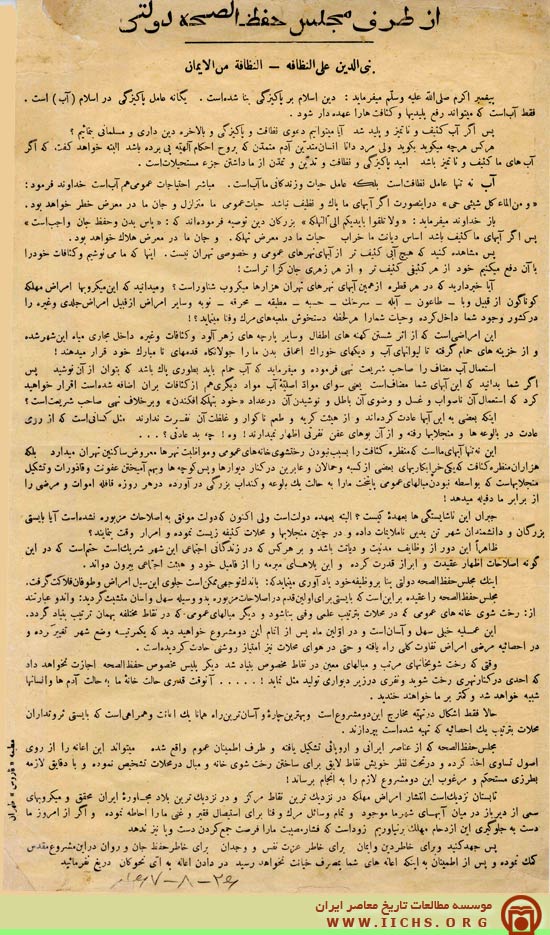 از طرف مجلس حفظ الصحه دولتی
بنی الدین علی النظافه — النظافة من الایمان
پیغمبر اکرم صلی الله علیه وسلم میفرماید : دین اسلام بر پاکیزگی بنا شده است . یگانه عامل پاکیزگی در اسلام (آب) است .
فقط آب است که میتواند رفع پلیدیها و کثافت هارا عهده دار شود .
پس اگر آب کثیف و ناتمیز و پلید شد آیا میتوانیم دعوی نظافت و پاکیزگی و بالاخره دین داری و مسلمانی بنمائیم ؟
هرکس هرچه میگوید بگوید ولی مرد دانا انسان متدین آدم متمدن که بروح احکام آلهیه پی برده باشد البته خواهد گفت که اگر
آب های ما کثیف و ناتمیز باشد امید پاکیزگی و نظافت و تدین و تمدن از ما داشتن جزء مستحیلات است .
آب نه تنها عامل نظافت است بلکه عامل حیات و زندگانی ما آب است . مباشر احتیاجات عمومی هم آب است خداوند فرمود :
«و من الماء کل شیئی حی» در اینصورت اگر آبهای ما پاک و نظیف نباشد حیات عمومی ما متزلزل و جان ما در معرض خطر خواهد بود .
باز خداوند میفرماید : «ولا تلقوا بایدیکم الی التهلکة» بزرگان دین توصیه فرموده اند که : «پاس بدن و حفظ جان واجب است»
پس اگر آبهای ما کثیف باشد اساس دیانت ما خراب حیات ما در معرض تهلکه . و جان ما در معرض هلاک خواهد بود .
پس مشاهده کنید که هیچ آبی کثیف تر از آبهای نهرهای عمومی و خصوصی تهران نیست . اینها که ما می نوشیم و کثافات خودرا
با آن دفع میکنیم خود از هر کثیفی کثیف تر و از هر زهری جان گزا تر است !
آیا خبر دارید که در هر قطره از همین آبهای نهرهای تهران هزارها میکروب شناور است ؟ و میدانید که این میکروبها امراض مهلکه
کوناکون از قبیل وبا — طاعون — آبله — سرخک — حصبه — مطبقه — محرقه — نوبه و سایر امراض از قبیل امراض جلدی و غیره را
در کشور وجود شما داخل کرده و حیات شما را هر لحظه دستخوش ملعبه های مرک و فنا مینماید ؟!
این امراضی است که از اثر شستن کهنه های اطفال و سایر پارچه های زهر آلود و کثافات وغیره داخل مجاری میاه این شهر شده
و از خزینه های حمام گرفته تا لیوانهای آب و دیکهای خوراک اعماق بدن ما را جولانگاه قدمهای نامبارک خود قرار میدهند !
استعمال آب مضاف را صاحب شریعت نهی فرموده و میفرماید که آب حمام باید بطوری پاک باشد که بتوان از آن نوشید پس
اگر شما بدانید که این آبهای شما مضاف است یعنی سوای مواد اصلیه آب مواد دیگری هم از کثافات بران اضافه شده است اقرار خواهید
کرد که استعمال آن ناصواب و غسل و وضوی آن باطل و نوشیدن آن در عداد «خود بتهلکه افکندن» و برخلاف نهی صاحب شریعت است ؟
اینکه بعضی به این آبها عادت کرده اند و از هیئت کریه و طعم ناگوار و غلظت آن نفسرت ندارند مثل کسانی است که از روی
عادت در بالوعه ها و منجلابها رفته و از آن بوهای عفن نفرتی اظهار نمیدارند ! وه ! چه بد عادتی ؟ . . .
این نه تنها آبهای ما است که منظره کثافت را بسبب نبودن رختشوی خانه های عمومی و مواظبت نهر ها معروض ساکنین تهران میدارد بلکه
هزاران منظره کثافت که یکی خرابکاریهای بعضی از کسبه و حمالان و عابرین در کنار دیوارها و پس کوچه ها و بهم آمیختن عفونت و قاذورات و تشکیل
منجلابهاست که بواسطه نبودن مبالهای عمومی پایتخت مارا به حالت یک بلوعه و کنداب بزرگی در آورده در هر روزه قافله اموات و مرضی را
از برابر ما دفیله میدهد !
جبران این ناشایستگی ها بعهده کیست ؟ البته بعهده دولت است ولی اکنون که دولت موفق به اصلاحات مزبوره نشده است آیا بایستی
بزرگان و دانشمندان شهر تن بدین ناملایمات داده و در چنین منجلابها و محلات کثیفه زیست نموده و امرار وقت بنمایند ؟
ظاهراً این دور از وظایف مدنیت و دیانت باشد و بر هر کس که در زندگانی اجتماعی این شهر شریک است حتم است که در این
گونه اصلاحات اظهار عقیدت و ابراز قدرت کرده و این بلاهای مبرمه را از فامیل خود و هیئت اجتماعی بیرون دواند .
اینک مجلس حفظ الصحه دولتی بنا بر وظیفه خود یاد آوری مینماید که : باندک توجهی ممکن است جلوی این سیل امراض و طوفان فلاکت گرفت .
مجلس حفظ الصحه را عقیده بر این است که بایستی برای اولین قدم در اصلاحات مزبوره بدو وسیله سهل و آسان متشبث گردید : واندو عبارتند
از : رخت شوی خانه های عمومی که در محلات بترتیب علمی وفنی بنا شود و دیگر مبالهای عمومی که در نقاط مختلفه بهمان ترتیب بنیاد گردد .
این عملیه خیلی سهل و آسان است و در اولین ماه پس از اتمام این دو مشروع خواهید دید که یکمرتبه وضع شهر تغییر کرده و
در احصائیه مرضی امراض تفاوت کلی راه یافته و حتی در هوای محلات نیز امتیاز روشنی حادث گردیده است .
وقتی که رخت شویخانهای مرتب و مبالهای معین در نقاط مخصوص بنیاد شد دیگر پلیس مخصوص حفظ الصحه اجازت نخواهد داد
که احدی در کنار نهری رخت شوید و نفری در زیر دیواری تولید مثل نماید ! . . . . . آنوقت قدری حالت خانهٔ ما به حالت آدم ها و انسانها
شبیه خواهد شد و کمتر بر ما خواهند خندید .
حالا فقط اشکال در تهیّه مخارج این دو مشروع است و بهترین چاره و آسان ترین راه همانا یک اعانت و همراهی است که بایستی ثروتداران
محلات بترتیب یک احصائیه که تهیه شده است بپردازند .
مجلس حفظ الصحه که از عناصر ایرانی و اروپائی تشکیل یافته و طرف اطمینان عموم واقع شده میتواند این اعانه را از روی
اصول تساوی اخذ کرده و در تحت نظر خویش نقاط لایق برای ساختن رخت شوی خانه و مبال در محلات تشخیص نموده و با دقایق لازمه
بطرزی مستحکم و مرغوب این دو مشروع لازم را به انجام برساند !
تابستان نزدیک است انتشار امراض مهلکه در نزدیک ترین نقاط مرکز و در نزدیک ترین بلاد مجاورۀ ایران محقق و میکروبهای
سمی از دیر باز در میان آبهای شهر ما موجود و تمام وسائل مرک و فنا برای استیصال فقیر و غنی ما را احاطه نموده و اگر از امروز ما
دست به جلوگیری این ازدحام مهلک برنیاوریم زود است که فشار مصیبت ما را فرصت جمع کردن دست و پا نیز ندهد
پس جهد کنید و برای خاطر دین و ایمان برای خاطر عزت نفس و وجدان برای خاطر حفظ جان و روان در این مشروع مقدس
کمک نموده و پس از اطمینان به اینکه اعانه های شما بمصرف خیانت نخواهد رسید در دادن اعانه به آتی نحوکان دریغ نفرمائید
مطبعه « فاروس » طهران
موسسه مطالعات تاریخ معاصر ایران
WWW.IICHS.ORG